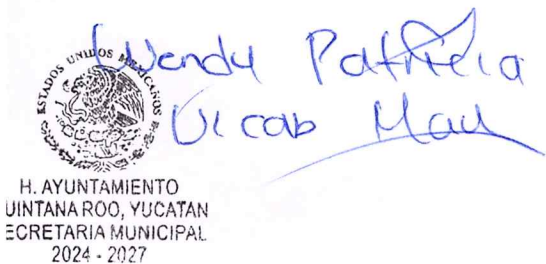 Wendy Patricia
Uicab May
ESTADOS UNIDOS MEXICANOS
H. AYUNTAMIENTO
UINTANA ROO, YUCATAN
ECRETARIA MUNICIPAL
2024 - 2027